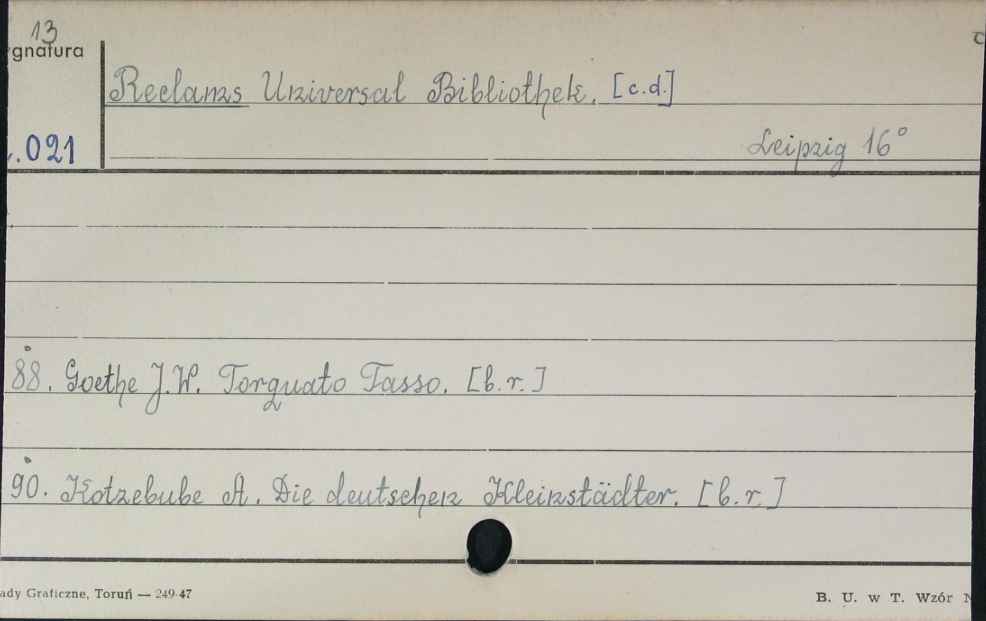 13
ygnatura
Reclams Universal Bibliothek. [c.d.]
.021
Leipzig 16°
88. Goethe J.W. Torquato Tasso. [b.r.]
90. Kotzebube A. Die deutschen Kleinstädter. [b.r.]
ady Graficzne, Toruń — 249-47
B. U. w T. Wzór N